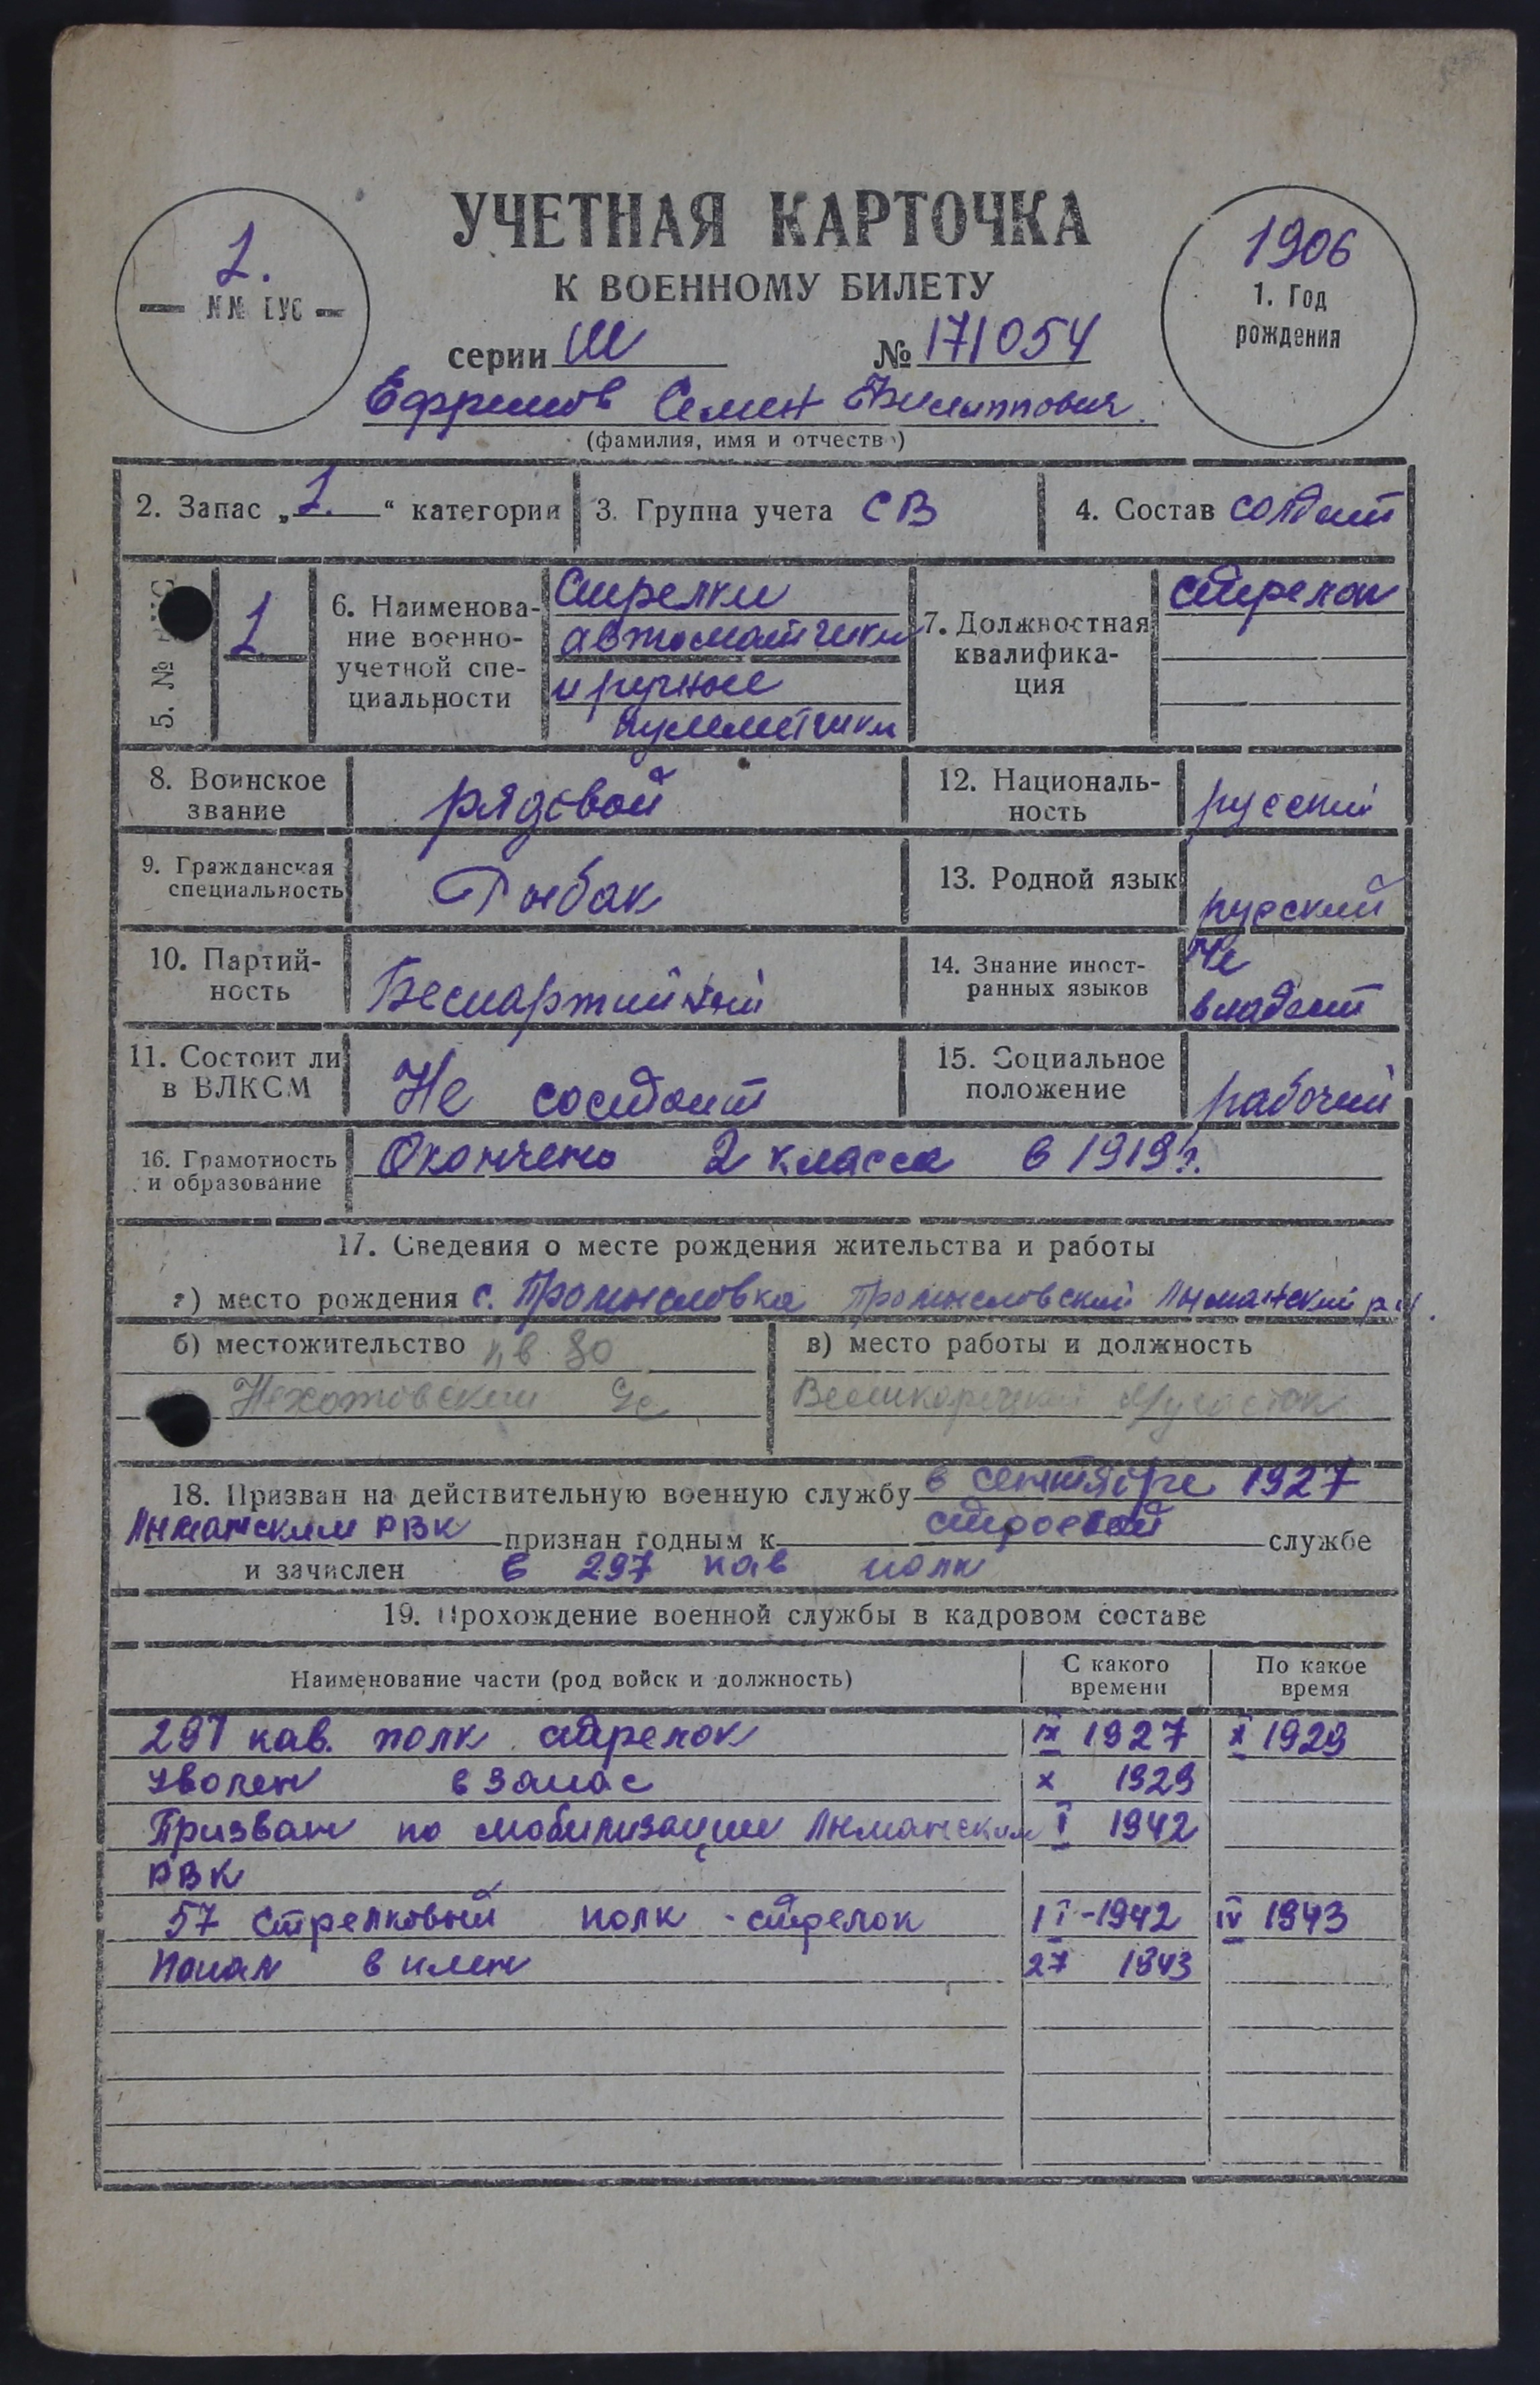 УЧЕТНАЯ КАРТОЧКА
К ВОЕННОМУ БИЛЕТУ
1.
№№ ВУС
1906
1. Год
рождения
серии Ш № 171054
Ефремов Семен Филиппович
(фамилия, имя и отчество)
2. Запас „1.“ категории 3. Группа учета СВ 4. Состав солдат
5. № 1
6. Наименова-
ние военно-
учетной спе-
циальности
Стрелки
автоматчики
и ручные
пулеметчики
7. Должностная
квалифика-
ция
стрелок
8. Воинское
звание
рядовой
12. Националь-
ность
русский
9. Гражданская
специальность
Рыбак
13. Родной язык
русский
10. Партий-
ность
Беспартийный
14. Знание иност-
ранных языков
Не
владеет
11. Состоит ли
в ВЛКСМ
Не состоит
15. Социальное
положение
рабочий
16. Грамотность
и образование
Окончено 2 класса в 1919 г.
17. Сведения о месте рождения жительства и работы
а) место рождения с. Промысловка Промысловский Лиманский р-н.
б) местожительство кв 80
в) место работы и должность
18. Призван на действительную военную службу в сентябре 1927
Лиманским РВК признан годным к строевой службе
и зачислен в 297 кав полк
19. Прохождение военной службы в кадровом составе
Наименование части (род войск и должность) С какого времени По какое время
297 кав. полк стрелок IX 1927 X 1929
Уволен в запас X 1929
Призван по мобилизации Лиманским I 1942
РВК
57 стрелковый полк - стрелок I-1942 IV 1943
Попал в плен 27 1943